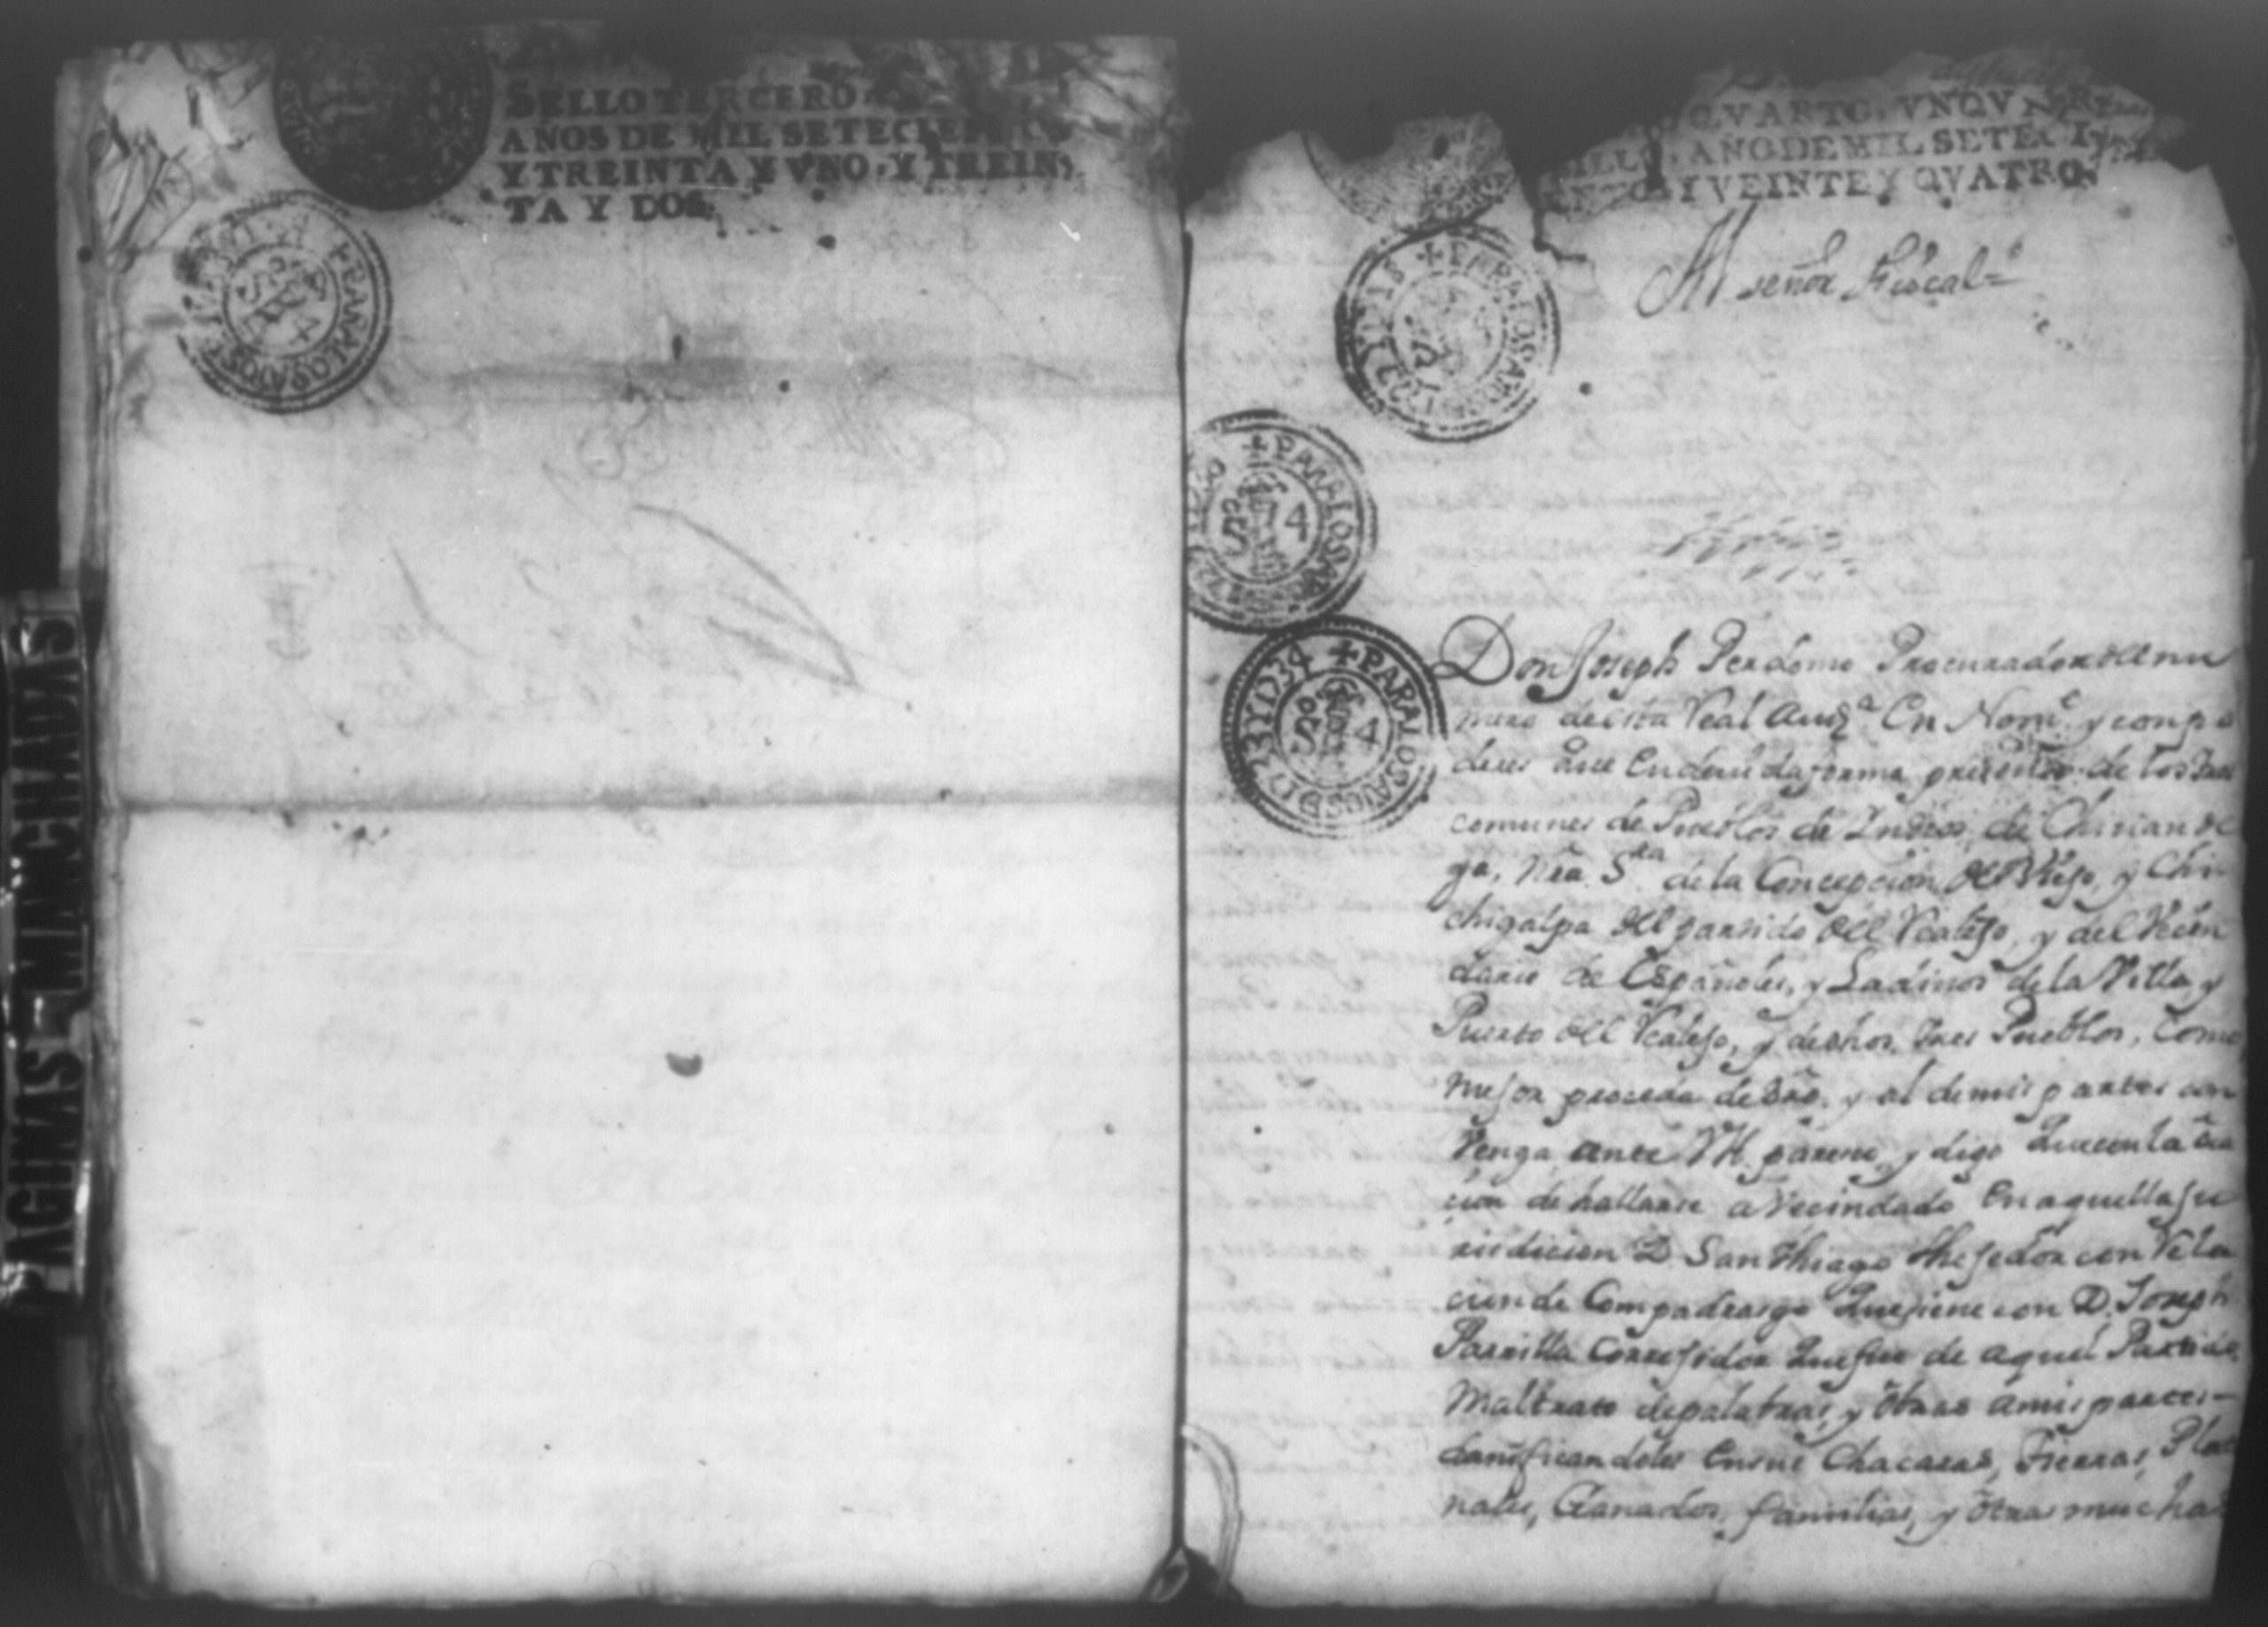 SELLO TERCERO
AÑOS DE MIL SETECIENTOS
Y TREINTA Y VNO, Y TREIN,
TA Y DOS.
PARA LOS AÍOS
QVARTO, VNQV
ILLO, AÑO DE MIL SETECI
Y VEINTE Y QVATRO.
Al señor Fiscal=
+PARA LOS AÍOS
+PARA LOS A
SD 4
+PARA LOS AÍOS D 1733 Y D 34
SD 4
PAGINAS MANCHADAS
Don Joseph Perdomo Procurador del nu
mero de esta Real Audª En Nome. y con po
deres que en devida forma presento de los tres
comunes de Pueblos de Indios, de Chinande
ga, Nra. Sra de la Concepcion del Viejo, y Chi
chigalpa del partido del Realejo, y del Vecin
dario de Españoles, y Ladinos de la Villa, y
Puerto del Realejo, y dechos. tres Pueblos, como
mejor proceda de dro. y al de mis partes con
venga ante VM. paresco, y digo que con la oca
cion de hallarse avecindado En aquella ju
risdicion D. San Thiago Thejedor con Rela
cion de Compadrasgo que tiene con D. Joseph
Parrilla Correjidor que fue de aquel Partido,
Maltrato de palabras, y obras a mis partes-
danificandoles En sus Chacaras, Tierras, Plata
nales, Ganados, familias, y otras mucha